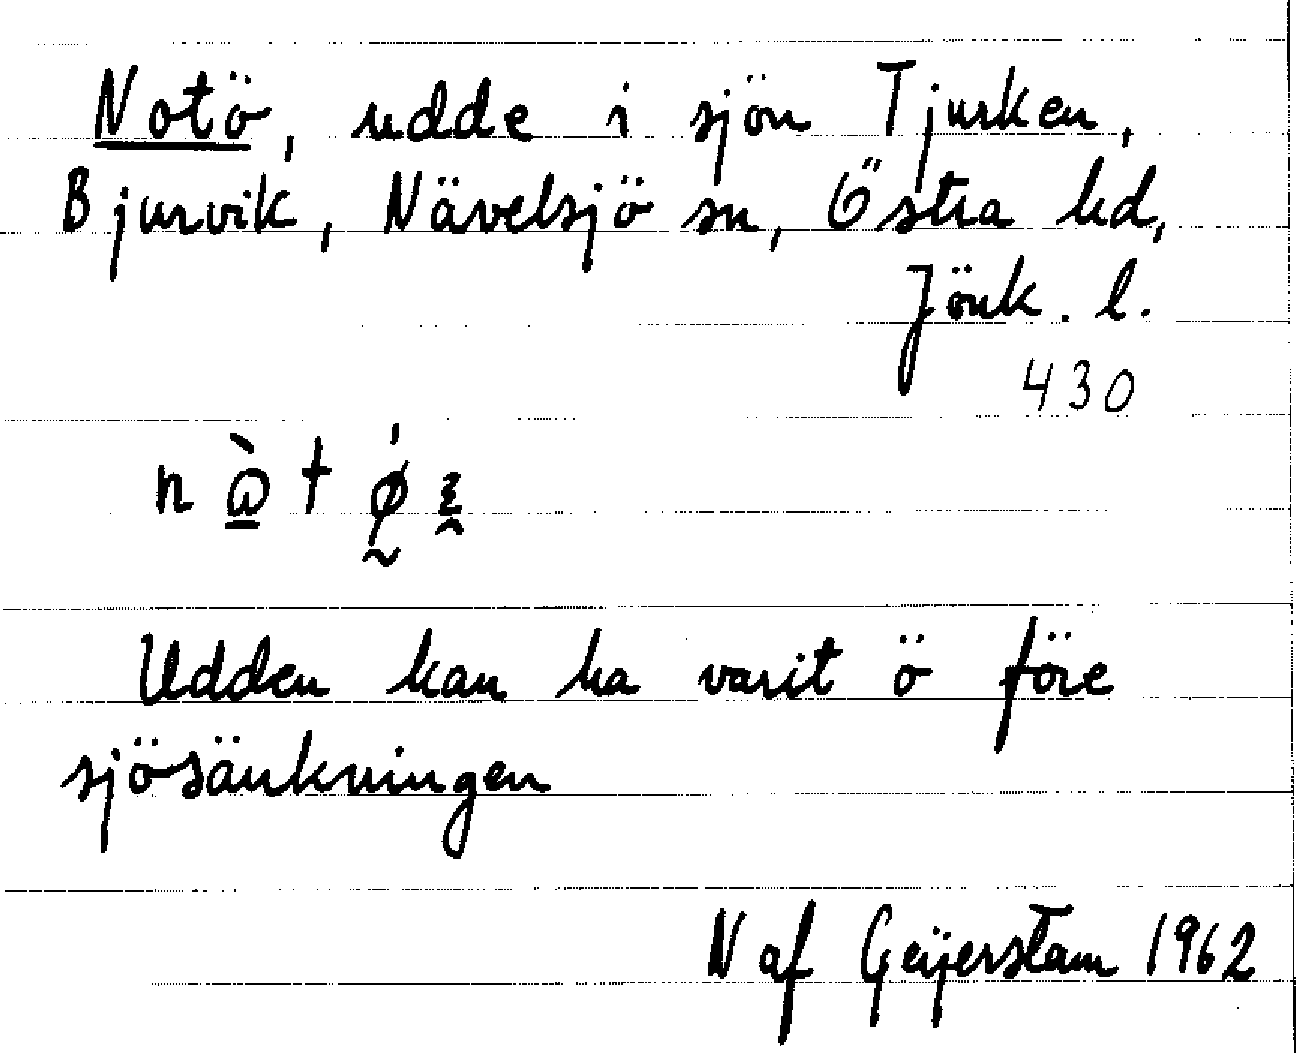 Notö, udde i sjön Tjurken,
Bjurvik, Nävelsjö sn, Östra hd,
Jönk. l.
430
Udden kan ha varit ö före
sjösänkningen
N af Geijerstam 1962